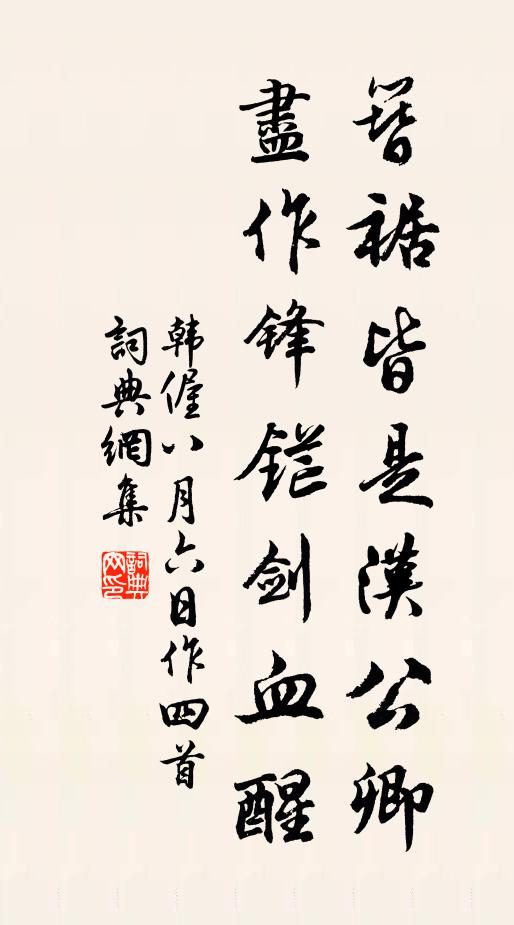 簪裾皆是漢公卿
盡作鋒鋩劍血醒
韩偓八月六日作四首
詞典網集
詞典
网印